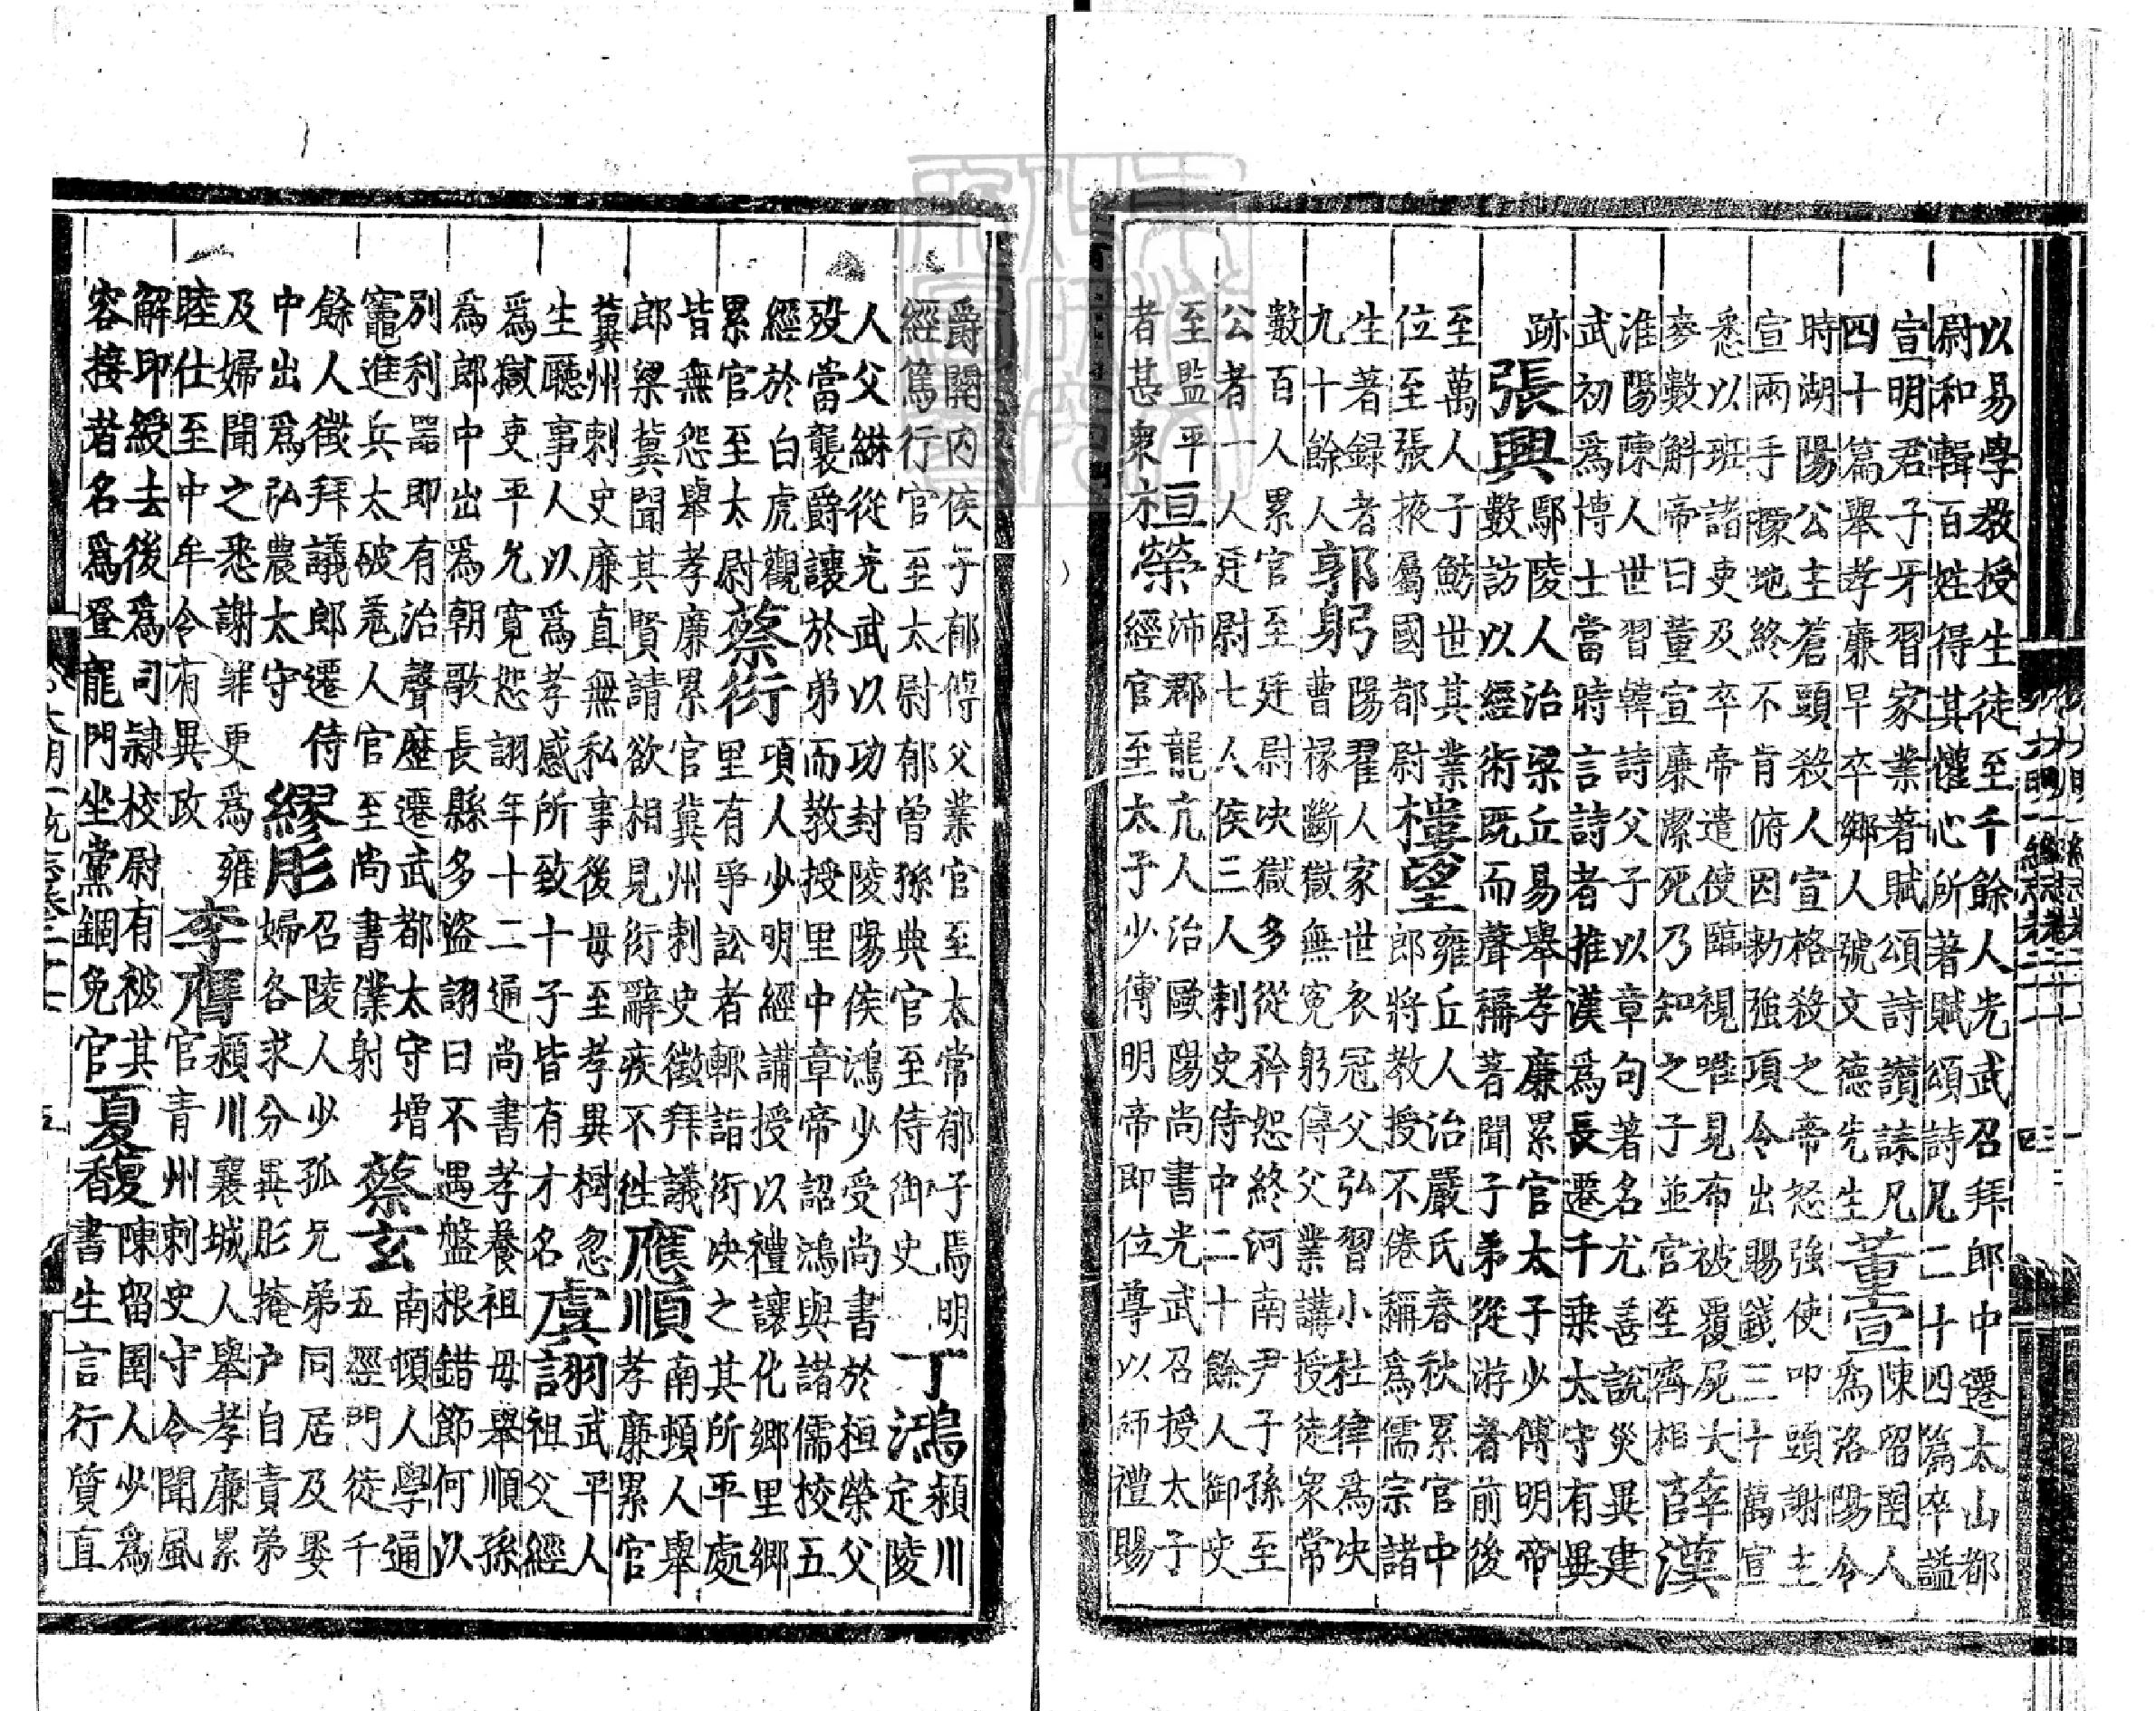 以易學教授生徒至千餘人光武召拜郎中遷太山都
尉和輯百姓得其懽心所著賦頌詩凡二十四篇卒謚
宣明君子牙習家業著賦頌詩讚誄凡
四十篇舉孝廉早卒鄉人號文德先生
董宣
陳留圉人
為洛陽令
時湖陽公主蒼頭殺人宣格殺之帝怒強使叩頭謝主
宣兩手據地終不肯俯因勑強項令出賜錢三十萬宣
悉以班諸吏及卒帝遣使臨視唯見布被覆屍大
麥數斛帝曰董宣廉潔死乃知之子並官至齊相
薛漢
淮陽陳人世習韓詩父子以章句著名尤善說災異建
武初為博士當時言詩者推漢為長遷千乗太守有異
跡
張興
鄢陵人治梁丘易舉孝廉累官太子少傅明帝
數訪以經術既而聲稱著聞子弟從游著前後
至萬人子魴世其業
位至張掖屬國都尉
樓望
雍丘人治嚴氏春秋累官中
郎將教授不倦稱為儒宗諸
生著録者
九十餘人
郭躬
陽翟人家世衣冠父弘習小杜律為决
曹掾斷獄無冤躬傳父業講授徒衆常
數百人累官至廷尉决獄多從矜恕終河南尹子孫至
公者一人廷尉七人侯三人刺史侍中二十餘人御史
至監平
者甚衆
桓榮
沛郡龍亢人治歐陽尚書光武召授太子
經官至太子少傅明帝即位尊以師禮賜
爵關内侯子郁傅父業官至太常郁子焉明
經篤行官至太尉郁曾孫典官至侍御史
丁鴻
潁川
定陵
人父綝從光武以功封陵陽侯鴻少受尚書於桓榮父
殁當襲爵讓於弟而教授里中章帝詔鴻與諸儒校五
經於白虎觀
累官至太尉
蔡衍
項人少明經講授以禮讓化鄉里鄉
里有爭訟者輙詣衍决之其所平處
皆無怨舉孝廉累官冀州刺史徵拜議
郎梁冀聞其賢請欲相見衍辭疾不徃
應順
南頓人舉
孝廉累官
冀州刺史廉直無私事後母至孝異樹忽
生聽事人以為孝感所致十子皆有才名
虞詡
武平人
祖父經
為獄吏平允寛恕詡年十二通尚書孝養祖母舉順孫
為郎中出為朝歌長縣多盜詡曰不遇盤根錯節何以
別利器即有治聲歷遷武都太守增
竈進兵太破羗人官至尚書僕射
蔡玄
南頓人學通
五經門徒千
餘人徵拜議郎遷侍
中出為弘農太守
繆肜
召陵人少孤兄弟同居及娶
婦各求分異肜掩户自責弟
及婦聞之悉謝罪更為雍
睦仕至中牟令有異政
李膺
潁川襄城人舉孝廉累
官青州刺史守令聞風
解印綬去後為司隸校尉有被其
容接者名為登龍門坐黨錮免官
夏馥
陳留圉人少為
書生言行質直